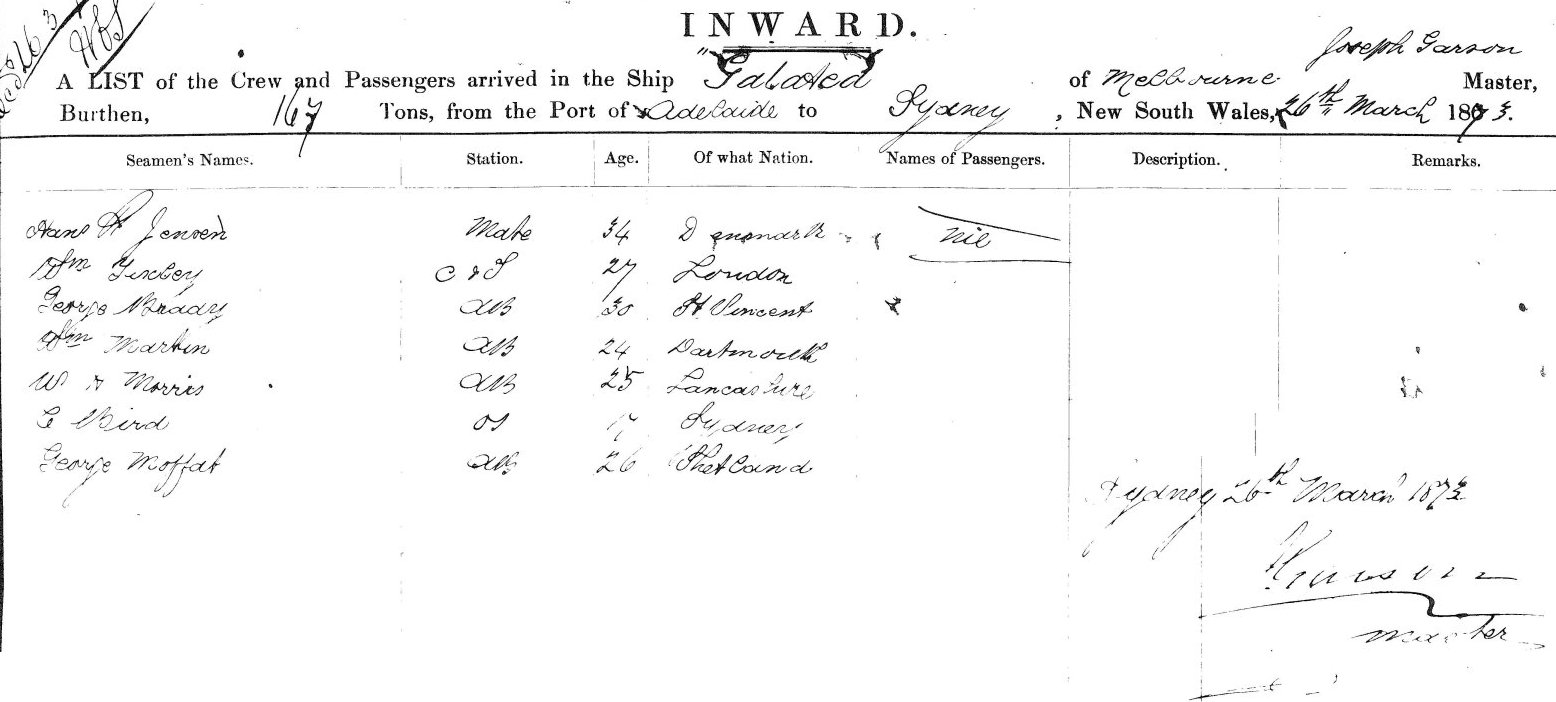 INWARD.
Joseph Garson
A LIST of the Crew and Passengers arrived in the Ship "Galatea" of Melbourne Master,
Burthen, 167 Tons, from the Port of Adelaide to Sydney, New South Wales, 26th March 1873.
Seamen's Names. Station. Age. Of what Nation. Names of Passengers. Description. Remarks.
Hans H Jensen Mate 34 Denmark Nil
Wm C & S 27 London
George Brady AB 30 St Vincent
Wm Martin AB 24 Dartmouth
W H Morris AB 25 Lancashire
C Bird OS 17 Sydney
George Moffat AB 26 Shetland
Sydney 26th March 1873
Master